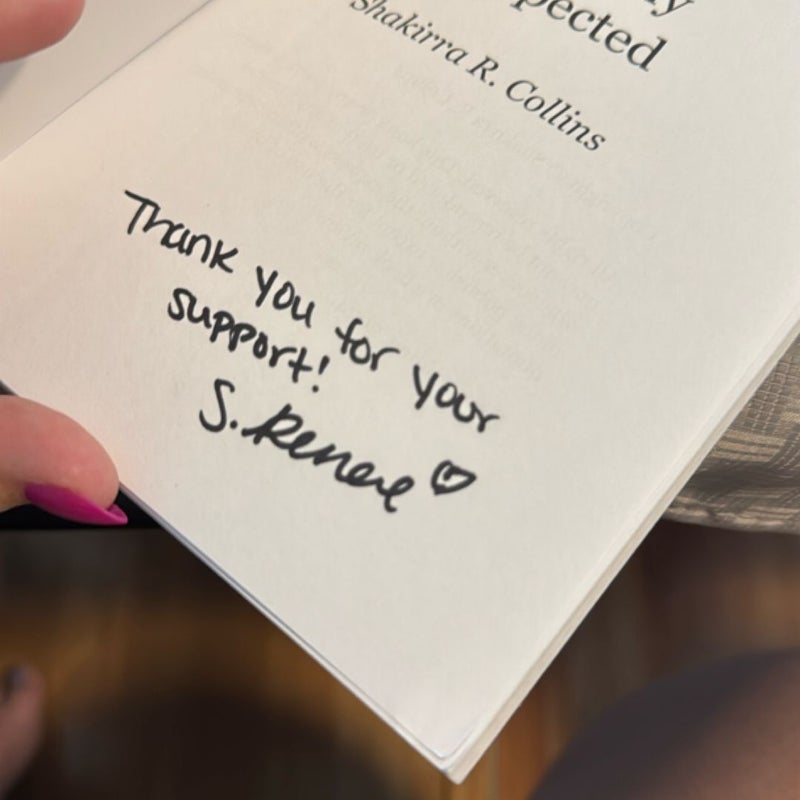 Shakirra R. Collins
Thank you for your
support!
S. Renee